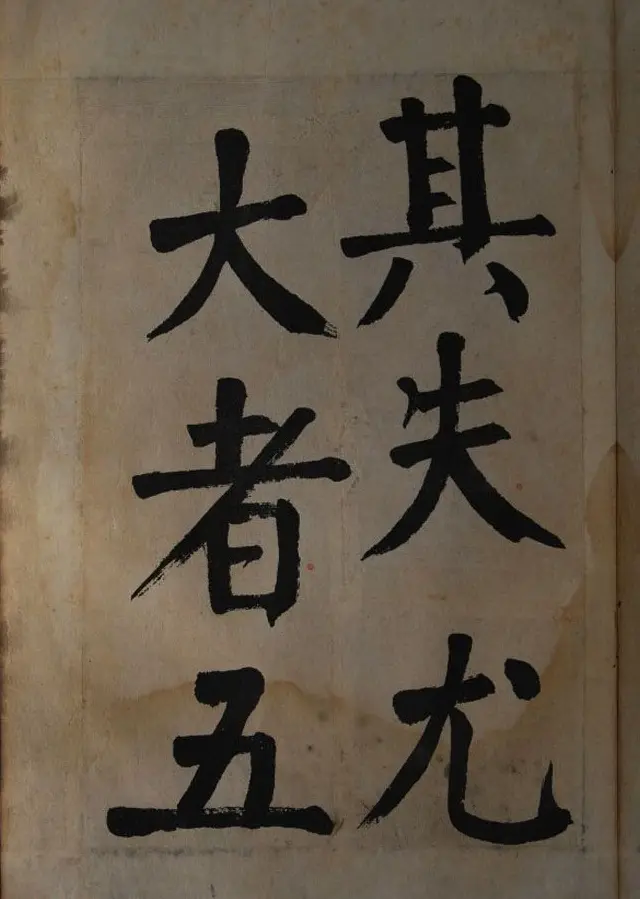 其失尤
大者五